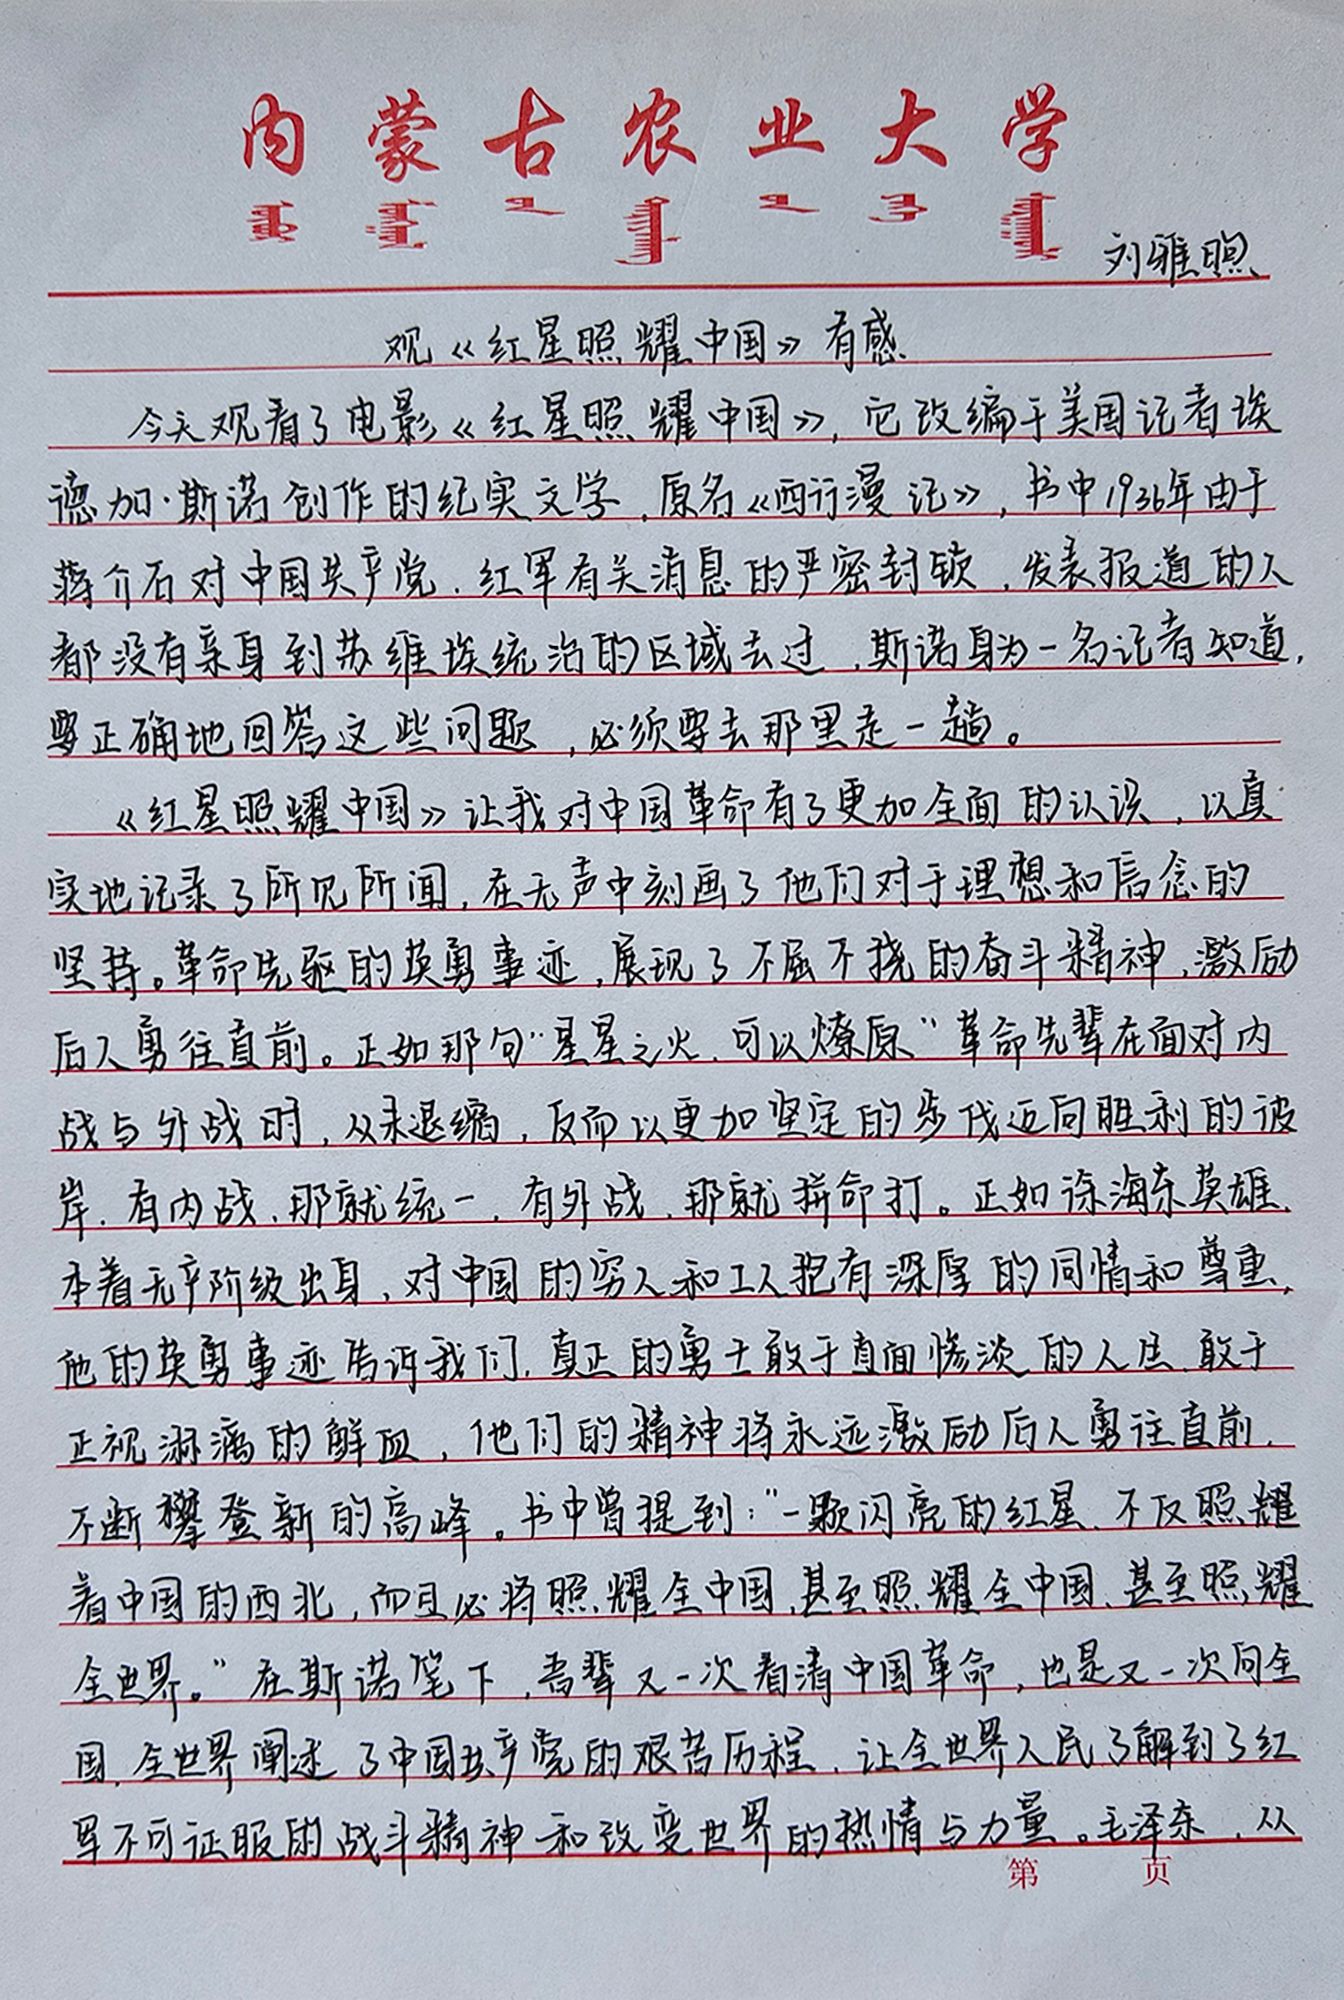 内蒙古农业大学
刘雅煦
观《红星照耀中国》有感
今天观看了电影《红星照耀中国》，它改编于美国记者埃
德加·斯诺创作的纪实文学，原名《西行漫记》，书中1936年由于
蒋介石对中国共产党、红军有关消息的严密封锁，发表报道的人
都没有亲身到苏维埃统治的区域去过，斯诺身为一名记者知道，
要正确地回答这些问题，必须要去那里走一趟。
《红星照耀中国》让我对中国革命有了更加全面的认识，以真
实地记录了所见所闻，在无声中刻画了他们对于理想和信念的
坚持。革命先驱的英勇事迹，展现了不屈不挠的奋斗精神，激励
后人勇往直前。正如那句“星星之火，可以燎原”革命先辈在面对内
战与外战时，从未退缩，反而以更加坚定的步伐迈向胜利的彼
岸，有内战，那就统一，有外战，那就拼命打。正如徐海东英雄，
本着无产阶级出身，对中国的穷人和工人抱有深厚的同情和尊重，
他的英勇事迹告诉我们，真正的勇士敢于直面惨淡的人生，敢于
正视淋漓的鲜血，他们的精神将永远激励后人勇往直前，
不断攀登新的高峰。书中曾提到：“一颗闪亮的红星，不仅照耀
着中国的西北，而且必将照耀全中国，甚至照耀全中国，甚至照耀
全世界。”在斯诺笔下，吾辈又一次看清中国革命，也是又一次向全
国，全世界阐述了中国共产党的艰苦历程，让全世界人民了解到了红
军不可征服的战斗精神和改变世界的热情与力量。毛泽东，从
第 页